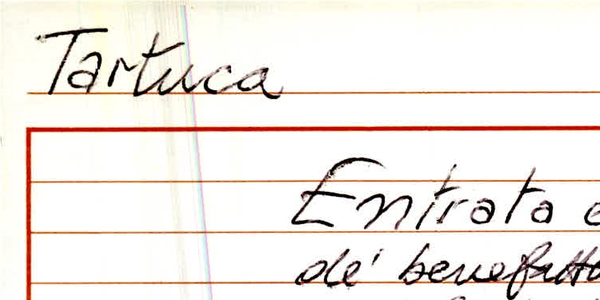 Tartuca
Entrata e
de' benefatto